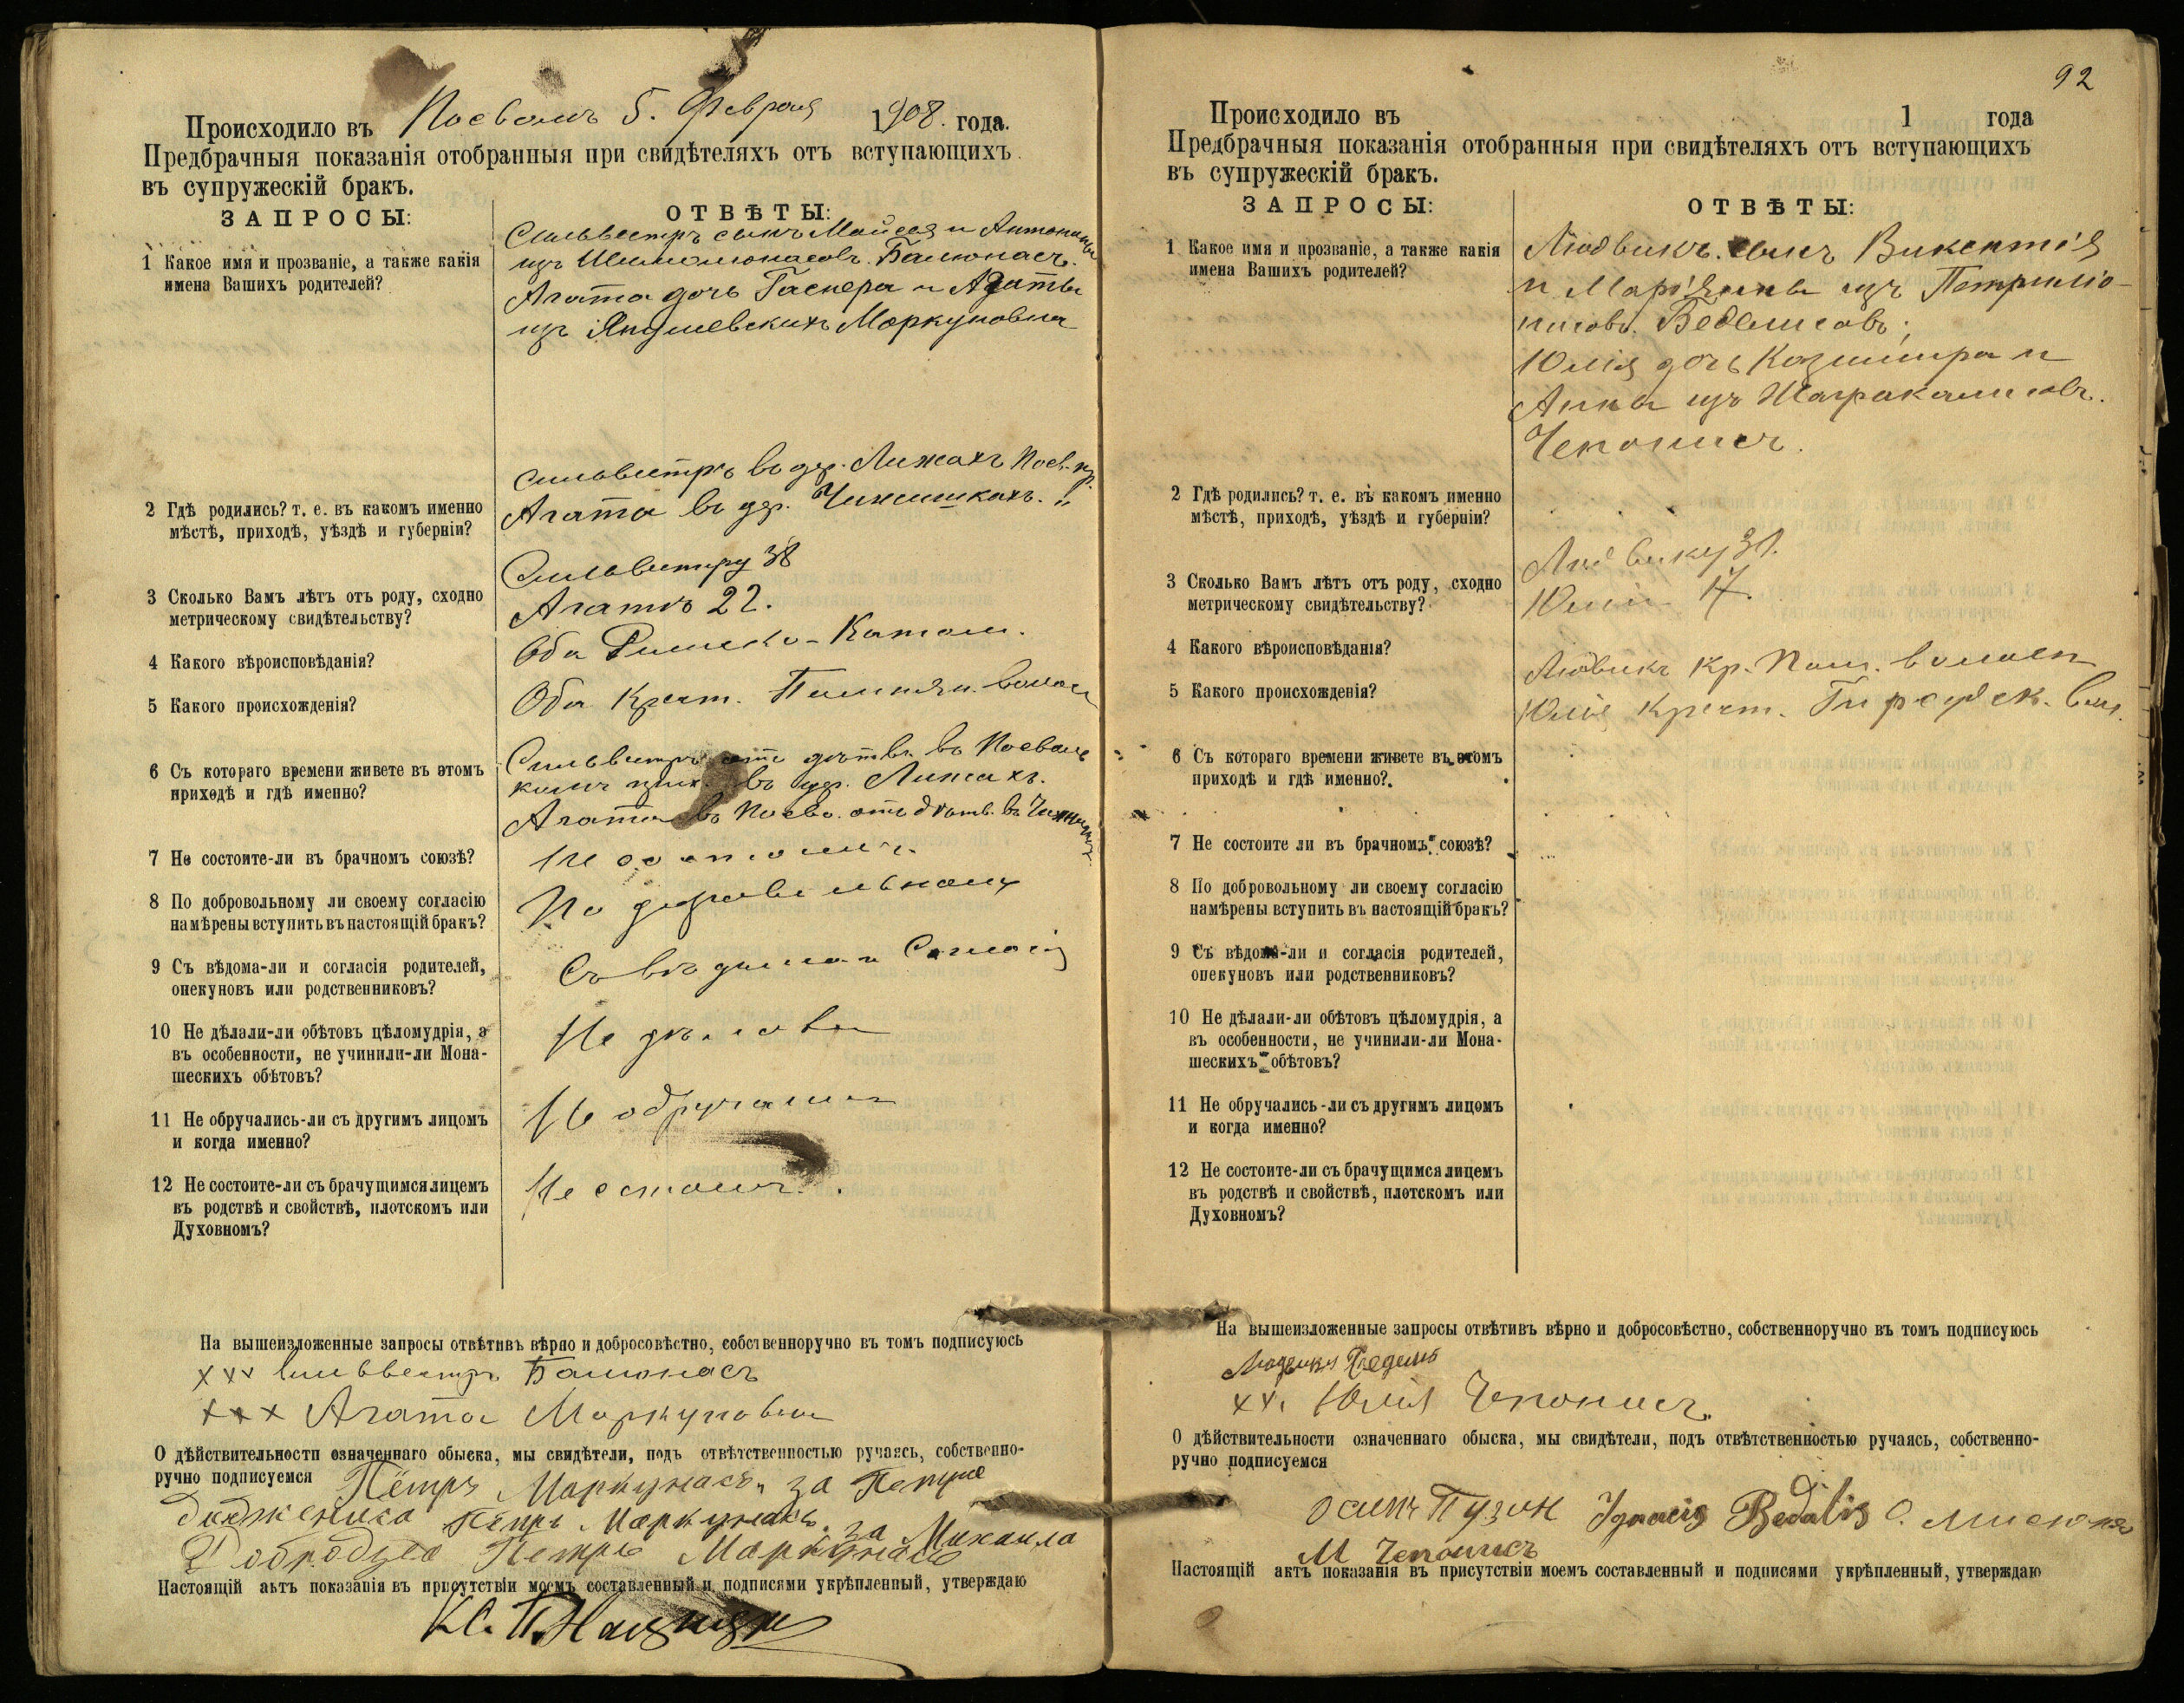 Происходило въ Поеволѣ 5. Февраля 1908. года.
Предбрачныя показанія отобранныя при свидѣтеляхъ отъ вступающихъ
въ супружескій бракъ.
ЗАПРОСЫ:
ОТВѢТЫ:
1 Какое имя и прозваніе, а также какія
имена Вашихъ родителей?
Сильвестръ сынъ Мойсея и Антонины
изъ Балюнасъ.
Агата дочь Гаспера и Агаты
изъ Янушевскихъ Маркуновна
2 Гдѣ родились? т. е. въ какомъ именно
мѣстѣ, приходѣ, уѣздѣ и губерніи?
Сильвестръ въ дер. Лижахъ Поев. пр.
Агата въ дер. "
3 Сколько Вамъ лѣтъ отъ роду, сходно
метрическому свидѣтельству?
Сильвестру 38
Агатѣ 22.
4 Какого вѣроисповѣданія?
Оба Римско-Катол.
5 Какого происхожденія?
Оба Крест. волос
6 Съ котораго времени живете въ этомъ
приходѣ и гдѣ именно?
Сильвестръ отъ дѣтв. въ Поеволь
въ дер. Лижахъ.
Агата въ Поево. отъ дѣтв. въ
7 Не состоите-ли въ брачномъ союзѣ?
Не состоимъ.
8 По добровольному ли своему согласію
намѣрены вступить въ настоящій бракъ?
По добровольному
9 Съ вѣдома-ли и согласія родителей,
опекуновъ или родственниковъ?
Съ вѣдома и Согласія
10 Не дѣлали-ли обѣтовъ цѣломудрія, а
въ особенности, не учинили-ли Мона-
шескихъ обѣтовъ?
Не дѣлали
11 Не обручались-ли съ другимъ лицомъ
и когда именно?
Не обручались
12 Не состоите-ли съ брачущимся лицемъ
въ родствѣ и свойствѣ, плотскомъ или
Духовномъ?
Не состоимъ.
На вышеизложенные запросы отвѣтивъ вѣрно и добросовѣстно, собственноручно въ томъ подписуюсь
xxx Сильвестръ Балюнасъ
xxx Агата Маркуновна
О дѣйствительности означеннаго обыска, мы свидѣтели, подъ отвѣтственностью ручаясь, собственно-
ручно подписуемся Пётръ Маркунасъ, за Петра
Пётръ Маркунасъ. за Михаила
Петръ Маркунасъ
Настоящій актъ показанія въ присутствіи моемъ составленный и подписями укрѣпленный, утверждаю
92
Происходило въ 1 года
Предбрачныя показанія отобранныя при свидѣтеляхъ отъ вступающихъ
въ супружескій бракъ.
ЗАПРОСЫ:
ОТВѢТЫ:
1 Какое имя и прозваніе, а также какія
имена Вашихъ родителей?
Людвикъ сынъ Викентія
и Маріянны изъ Петрилю-
нисовъ. Беделисовъ;
Юлія дочь Казиміра и
Анны изъ
Чепонисъ.
2 Гдѣ родились? т. е. въ какомъ именно
мѣстѣ, приходѣ, уѣздѣ и губерніи?
3 Сколько Вамъ лѣтъ отъ роду, сходно
метрическому свидѣтельству?
Людвику 31.
Юліи 17.
4 Какого вѣроисповѣданія?
5 Какого происхожденія?
Людвикъ кр. волост
Юлія крест. вол.
6 Съ котораго времени живете въ этомъ
приходѣ и гдѣ именно?
7 Не состоите ли въ брачномъ союзѣ?
8 По добровольному ли своему согласію
намѣрены вступить въ настоящій бракъ?
9 Съ вѣдома-ли и согласія родителей,
опекуновъ или родственниковъ?
10 Не дѣлали-ли обѣтовъ цѣломудрія, а
въ особенности, не учинили-ли Мона-
шескихъ обѣтовъ?
11 Не обручались-ли съ другимъ лицомъ
и когда именно?
12 Не состоите-ли съ брачущимся лицемъ
въ родствѣ и свойствѣ, плотскомъ или
Духовномъ?
На вышеизложенные запросы отвѣтивъ вѣрно и добросовѣстно, собственноручно въ томъ подписуюсь
xx. Юлія Чепонисъ.
О дѣйствительности означеннаго обыска, мы свидѣтели, подъ отвѣтственностью ручаясь, собственно-
ручно подписуемся
Осипъ Пузин Ignacis Bedalis О.
М Чепонисъ
Настоящій актъ показанія въ присутствіи моемъ составленный и подписями укрѣпленный, утверждаю